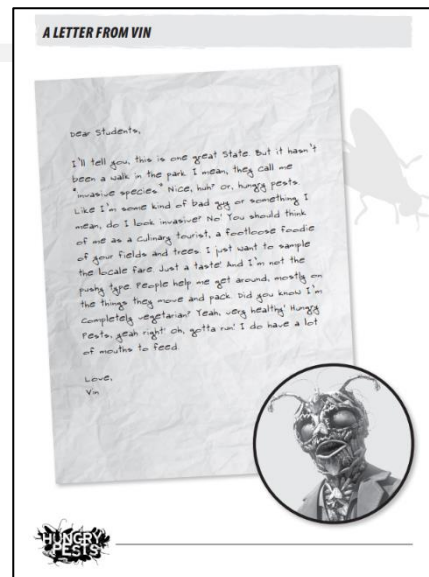 A LETTER FROM VIN
Dear Students,
I'll tell you, this is one great State. But it hasn't
been a walk in the park. I mean, they call me
"invasive species." Nice, huh? Or, hungry pests.
Like I'm some kind of bad guy or something. I
mean, do I look invasive? No! You should think
of me as a culinary tourist, a footloose foodie
of your fields and trees. I just want to sample
the locale fare. Just a taste! And I'm not the
pushy type. People help me get around, mostly on
the things they move and pack. Did you know I'm
completely vegetarian? Yeah, very healthy! Hungry
Pests, yeah right! Oh, gotta run! I do have a lot
of mouths to feed.
Love,
Vin
HUNGRY
PESTS